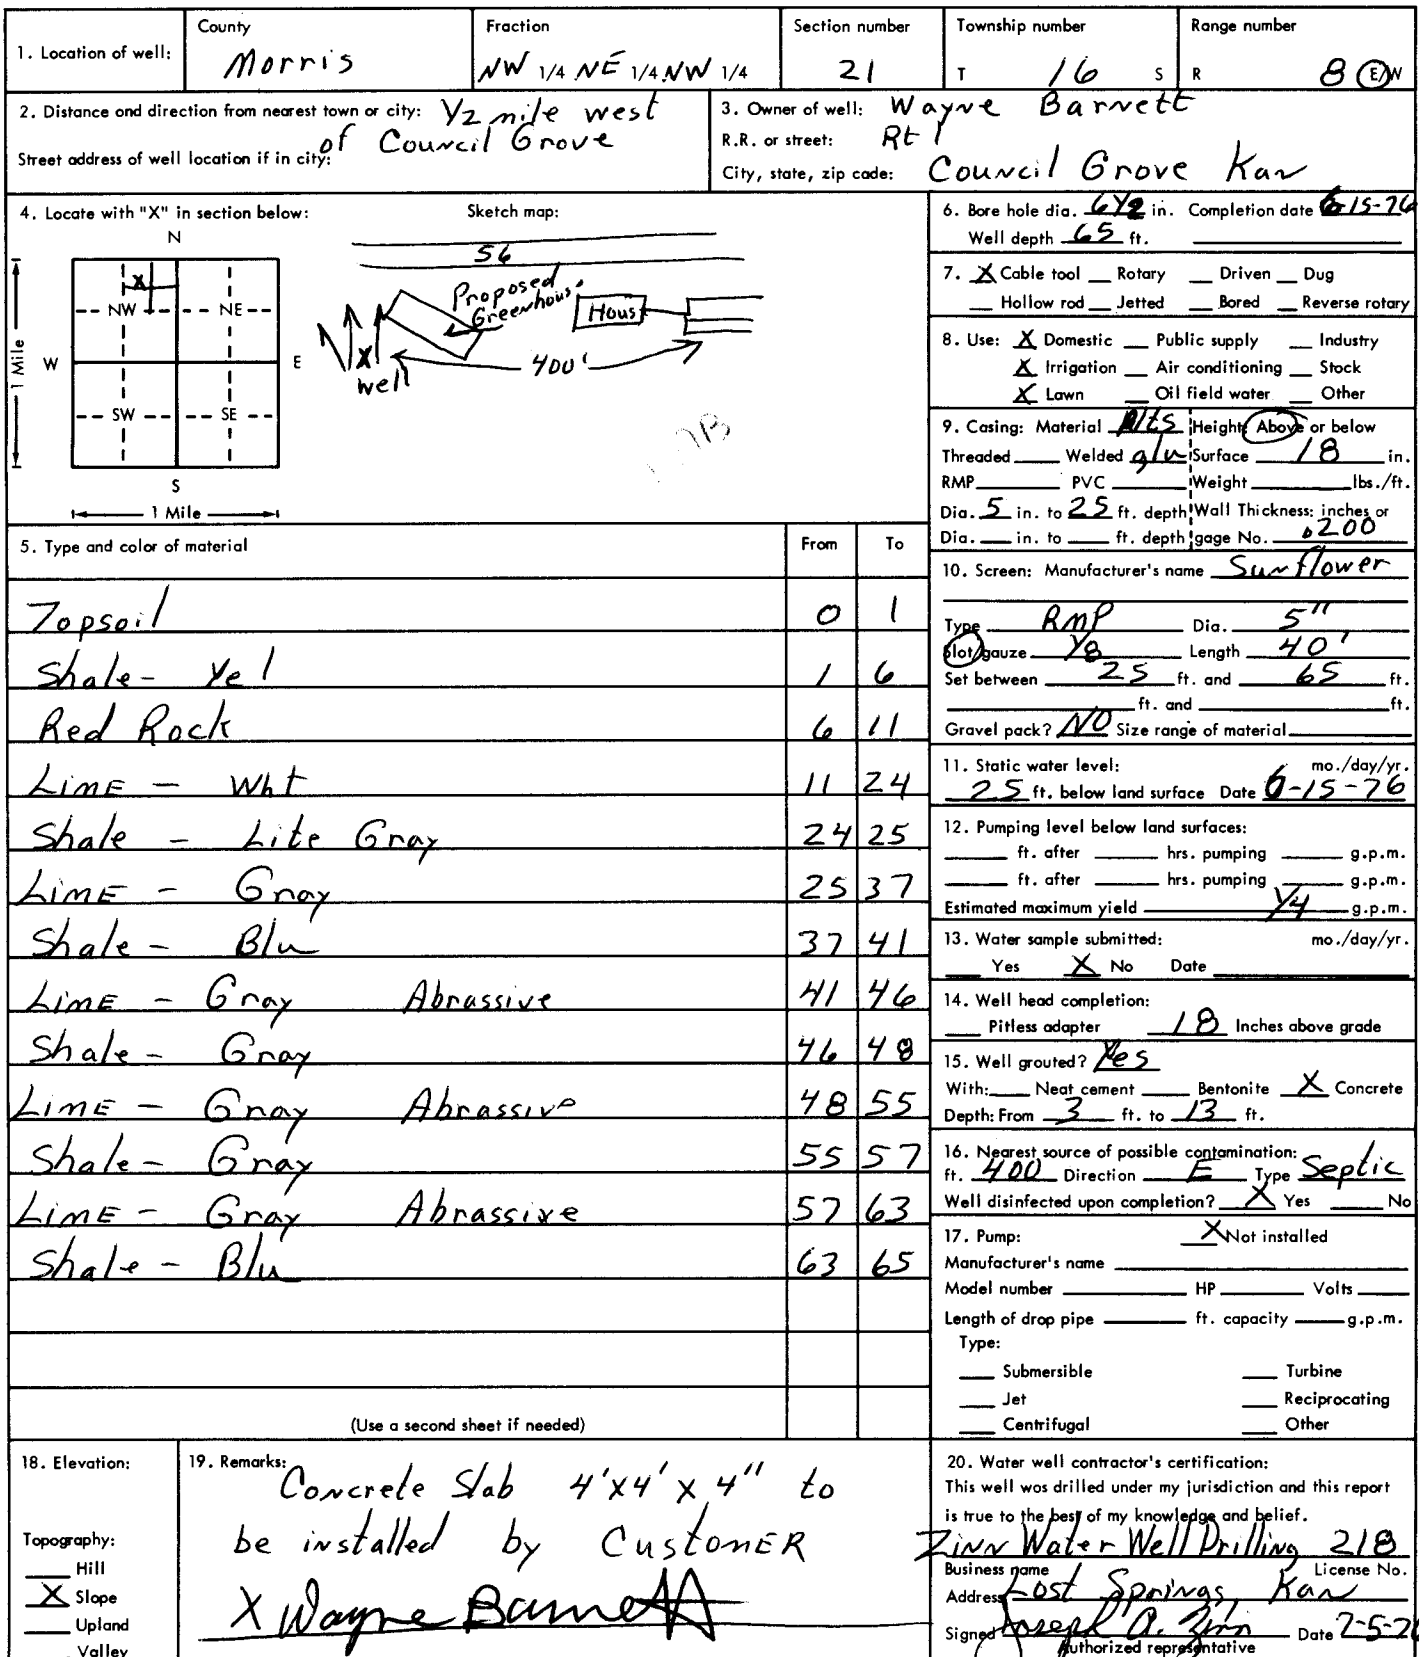 1. Location of well: County Morris Fraction NW 1/4 NE 1/4 NW 1/4 Section number 21 Township number T 16 S Range number R 8 E/W
2. Distance and direction from nearest town or city: 1/2 mile west
of Council Grove
Street address of well location if in city:
3. Owner of well: Wayne Barnett
R.R. or street: Rt 1
City, state, zip code: Council Grove Kan
4. Locate with "X" in section below: Sketch map:
N
NW NE
W E
SW SE
S
1 Mile
1 Mile
X
56
Proposed
Greenhous.
Hous
N
X
well
400'
5. Type and color of material From To
Topsoil 0 1
Shale - Yel 1 6
Red Rock 6 11
LimE - Wht 11 24
Shale - Lite Gray 24 25
LimE - Gray 25 37
Shale - Blu 37 41
LimE - Gray Abrassive 41 46
Shale - Gray 46 48
LimE - Gray Abrassive 48 55
Shale - Gray 55 57
LimE - Gray Abrassive 57 63
Shale - Blu 63 65
(Use a second sheet if needed)
6. Bore hole dia. 6 1/2 in. Completion date 6-15-76
Well depth 65 ft.
7. X Cable tool Rotary Driven Dug
Hollow rod Jetted Bored Reverse rotary
8. Use: X Domestic Public supply Industry
X Irrigation Air conditioning Stock
X Lawn Oil field water Other
9. Casing: Material Height: Above or below
Threaded Welded glu Surface 18 in.
RMP PVC Weight lbs./ft.
Dia. 5 in. to 25 ft. depth Wall Thickness: inches or
Dia. in. to ft. depth gage No. .200
10. Screen: Manufacturer's name Sunflower
Type RMP Dia. 5"
Slot/gauze 1/8 Length 40'
Set between 25 ft. and 65 ft.
ft. and ft.
Gravel pack? NO Size range of material
11. Static water level: mo./day/yr.
25 ft. below land surface Date 6-15-76
12. Pumping level below land surfaces:
ft. after hrs. pumping g.p.m.
ft. after hrs. pumping g.p.m.
Estimated maximum yield 1/4 g.p.m.
13. Water sample submitted: mo./day/yr.
Yes X No Date
14. Well head completion:
Pitless adapter 18 Inches above grade
15. Well grouted? Yes
With: Neat cement Bentonite X Concrete
Depth: From 3 ft. to 13 ft.
16. Nearest source of possible contamination:
ft. 400 Direction E Type Septic
Well disinfected upon completion? X Yes No
17. Pump: X Not installed
Manufacturer's name
Model number HP Volts
Length of drop pipe ft. capacity g.p.m.
Type:
Submersible Turbine
Jet Reciprocating
Centrifugal Other
18. Elevation:
Topography:
Hill
X Slope
Upland
Valley
19. Remarks:
Concrete Slab 4'x4' x 4" to
be installed by CustomER
X Wayne Barnett
20. Water well contractor's certification:
This well was drilled under my jurisdiction and this report
is true to the best of my knowledge and belief.
Zinn Water Well Drilling 218
Business name License No.
Address Lost Springs, Kan
Signed Joseph A. Zinn Date 7-5-76
Authorized representative